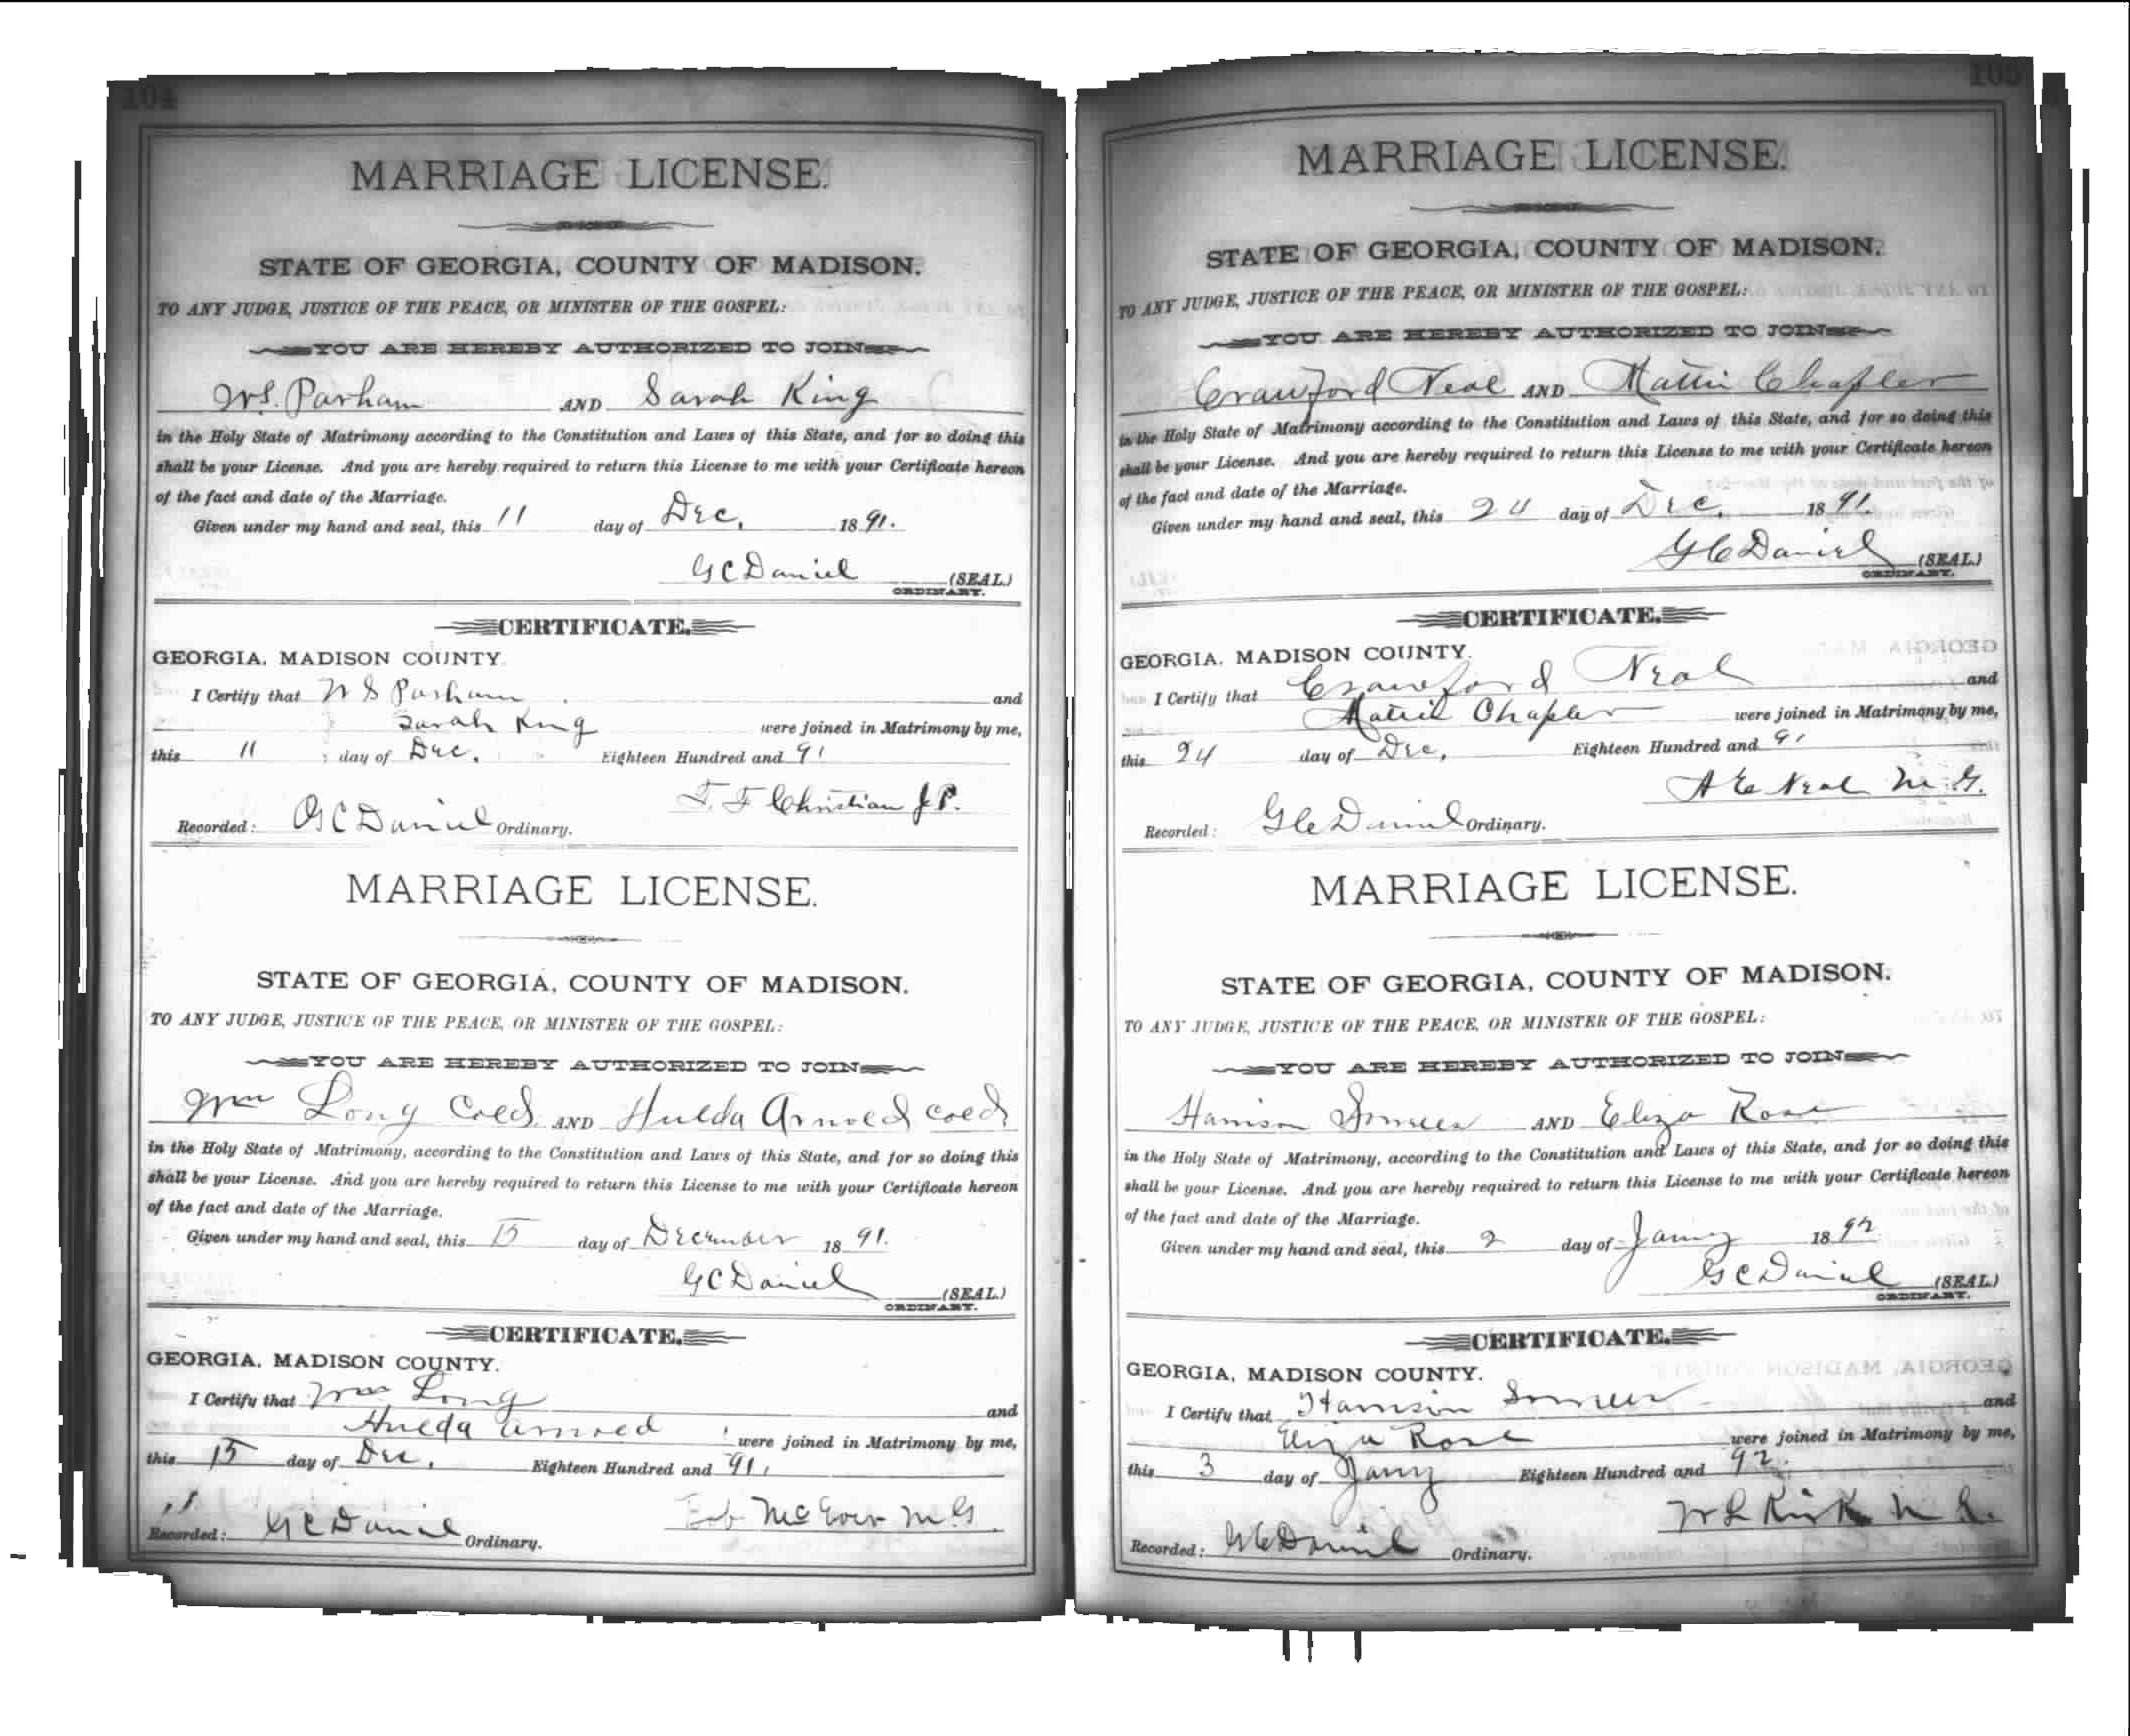 104
MARRIAGE LICENSE.
STATE OF GEORGIA, COUNTY OF MADISON.
TO ANY JUDGE, JUSTICE OF THE PEACE, OR MINISTER OF THE GOSPEL:
YOU ARE HEREBY AUTHORIZED TO JOIN
W.S. Parham AND Sarah King
in the Holy State of Matrimony according to the Constitution and Laws of this State, and for so doing this
shall be your License. And you are hereby required to return this License to me with your Certificate hereon
of the fact and date of the Marriage.
Given under my hand and seal, this 11 day of Dec. 1891.
G C Daniel (SEAL.)
ORDINARY.
CERTIFICATE.
GEORGIA, MADISON COUNTY.
I Certify that W S Parham and
Sarah King were joined in Matrimony by me,
this 11 day of Dec. Eighteen Hundred and 91
T. F Christian J.P.
Recorded: G C Daniel Ordinary.
MARRIAGE LICENSE.
STATE OF GEORGIA, COUNTY OF MADISON.
TO ANY JUDGE, JUSTICE OF THE PEACE, OR MINISTER OF THE GOSPEL:
YOU ARE HEREBY AUTHORIZED TO JOIN
Wm Long Cold. AND Hulda Arnold Cold.
in the Holy State of Matrimony, according to the Constitution and Laws of this State, and for so doing this
shall be your License. And you are hereby required to return this License to me with your Certificate hereon
of the fact and date of the Marriage.
Given under my hand and seal, this 15 day of December 1891.
G C Daniel (SEAL.)
ORDINARY.
CERTIFICATE.
GEORGIA, MADISON COUNTY.
I Certify that Wm Long and
Hulda Arnold were joined in Matrimony by me,
this 15 day of Dec. Eighteen Hundred and 91.
M.G.
Recorded: G C Daniel Ordinary.
105
MARRIAGE LICENSE.
STATE OF GEORGIA, COUNTY OF MADISON.
TO ANY JUDGE, JUSTICE OF THE PEACE, OR MINISTER OF THE GOSPEL:
YOU ARE HEREBY AUTHORIZED TO JOIN
Crawford Neal AND Mattie Chafler
in the Holy State of Matrimony according to the Constitution and Laws of this State, and for so doing this
shall be your License. And you are hereby required to return this License to me with your Certificate hereon
of the fact and date of the Marriage.
Given under my hand and seal, this 24 day of Dec. 1891.
G C Daniel (SEAL.)
ORDINARY.
CERTIFICATE.
GEORGIA, MADISON COUNTY.
I Certify that Crawford Neal and
Mattie Chafler were joined in Matrimony by me,
this 24 day of Dec. Eighteen Hundred and 91
A E Neal M.G.
Recorded: G C Daniel Ordinary.
MARRIAGE LICENSE.
STATE OF GEORGIA, COUNTY OF MADISON.
TO ANY JUDGE, JUSTICE OF THE PEACE, OR MINISTER OF THE GOSPEL:
YOU ARE HEREBY AUTHORIZED TO JOIN
Harrison AND Eliza Rose
in the Holy State of Matrimony, according to the Constitution and Laws of this State, and for so doing this
shall be your License. And you are hereby required to return this License to me with your Certificate hereon
of the fact and date of the Marriage.
Given under my hand and seal, this 2 day of Jany 1892
G C Daniel (SEAL.)
ORDINARY.
CERTIFICATE.
GEORGIA, MADISON COUNTY.
I Certify that Harrison and
Eliza Rose were joined in Matrimony by me,
this 3 day of Jany Eighteen Hundred and 92.
W L Kirk M.G.
Recorded: G C Daniel Ordinary.